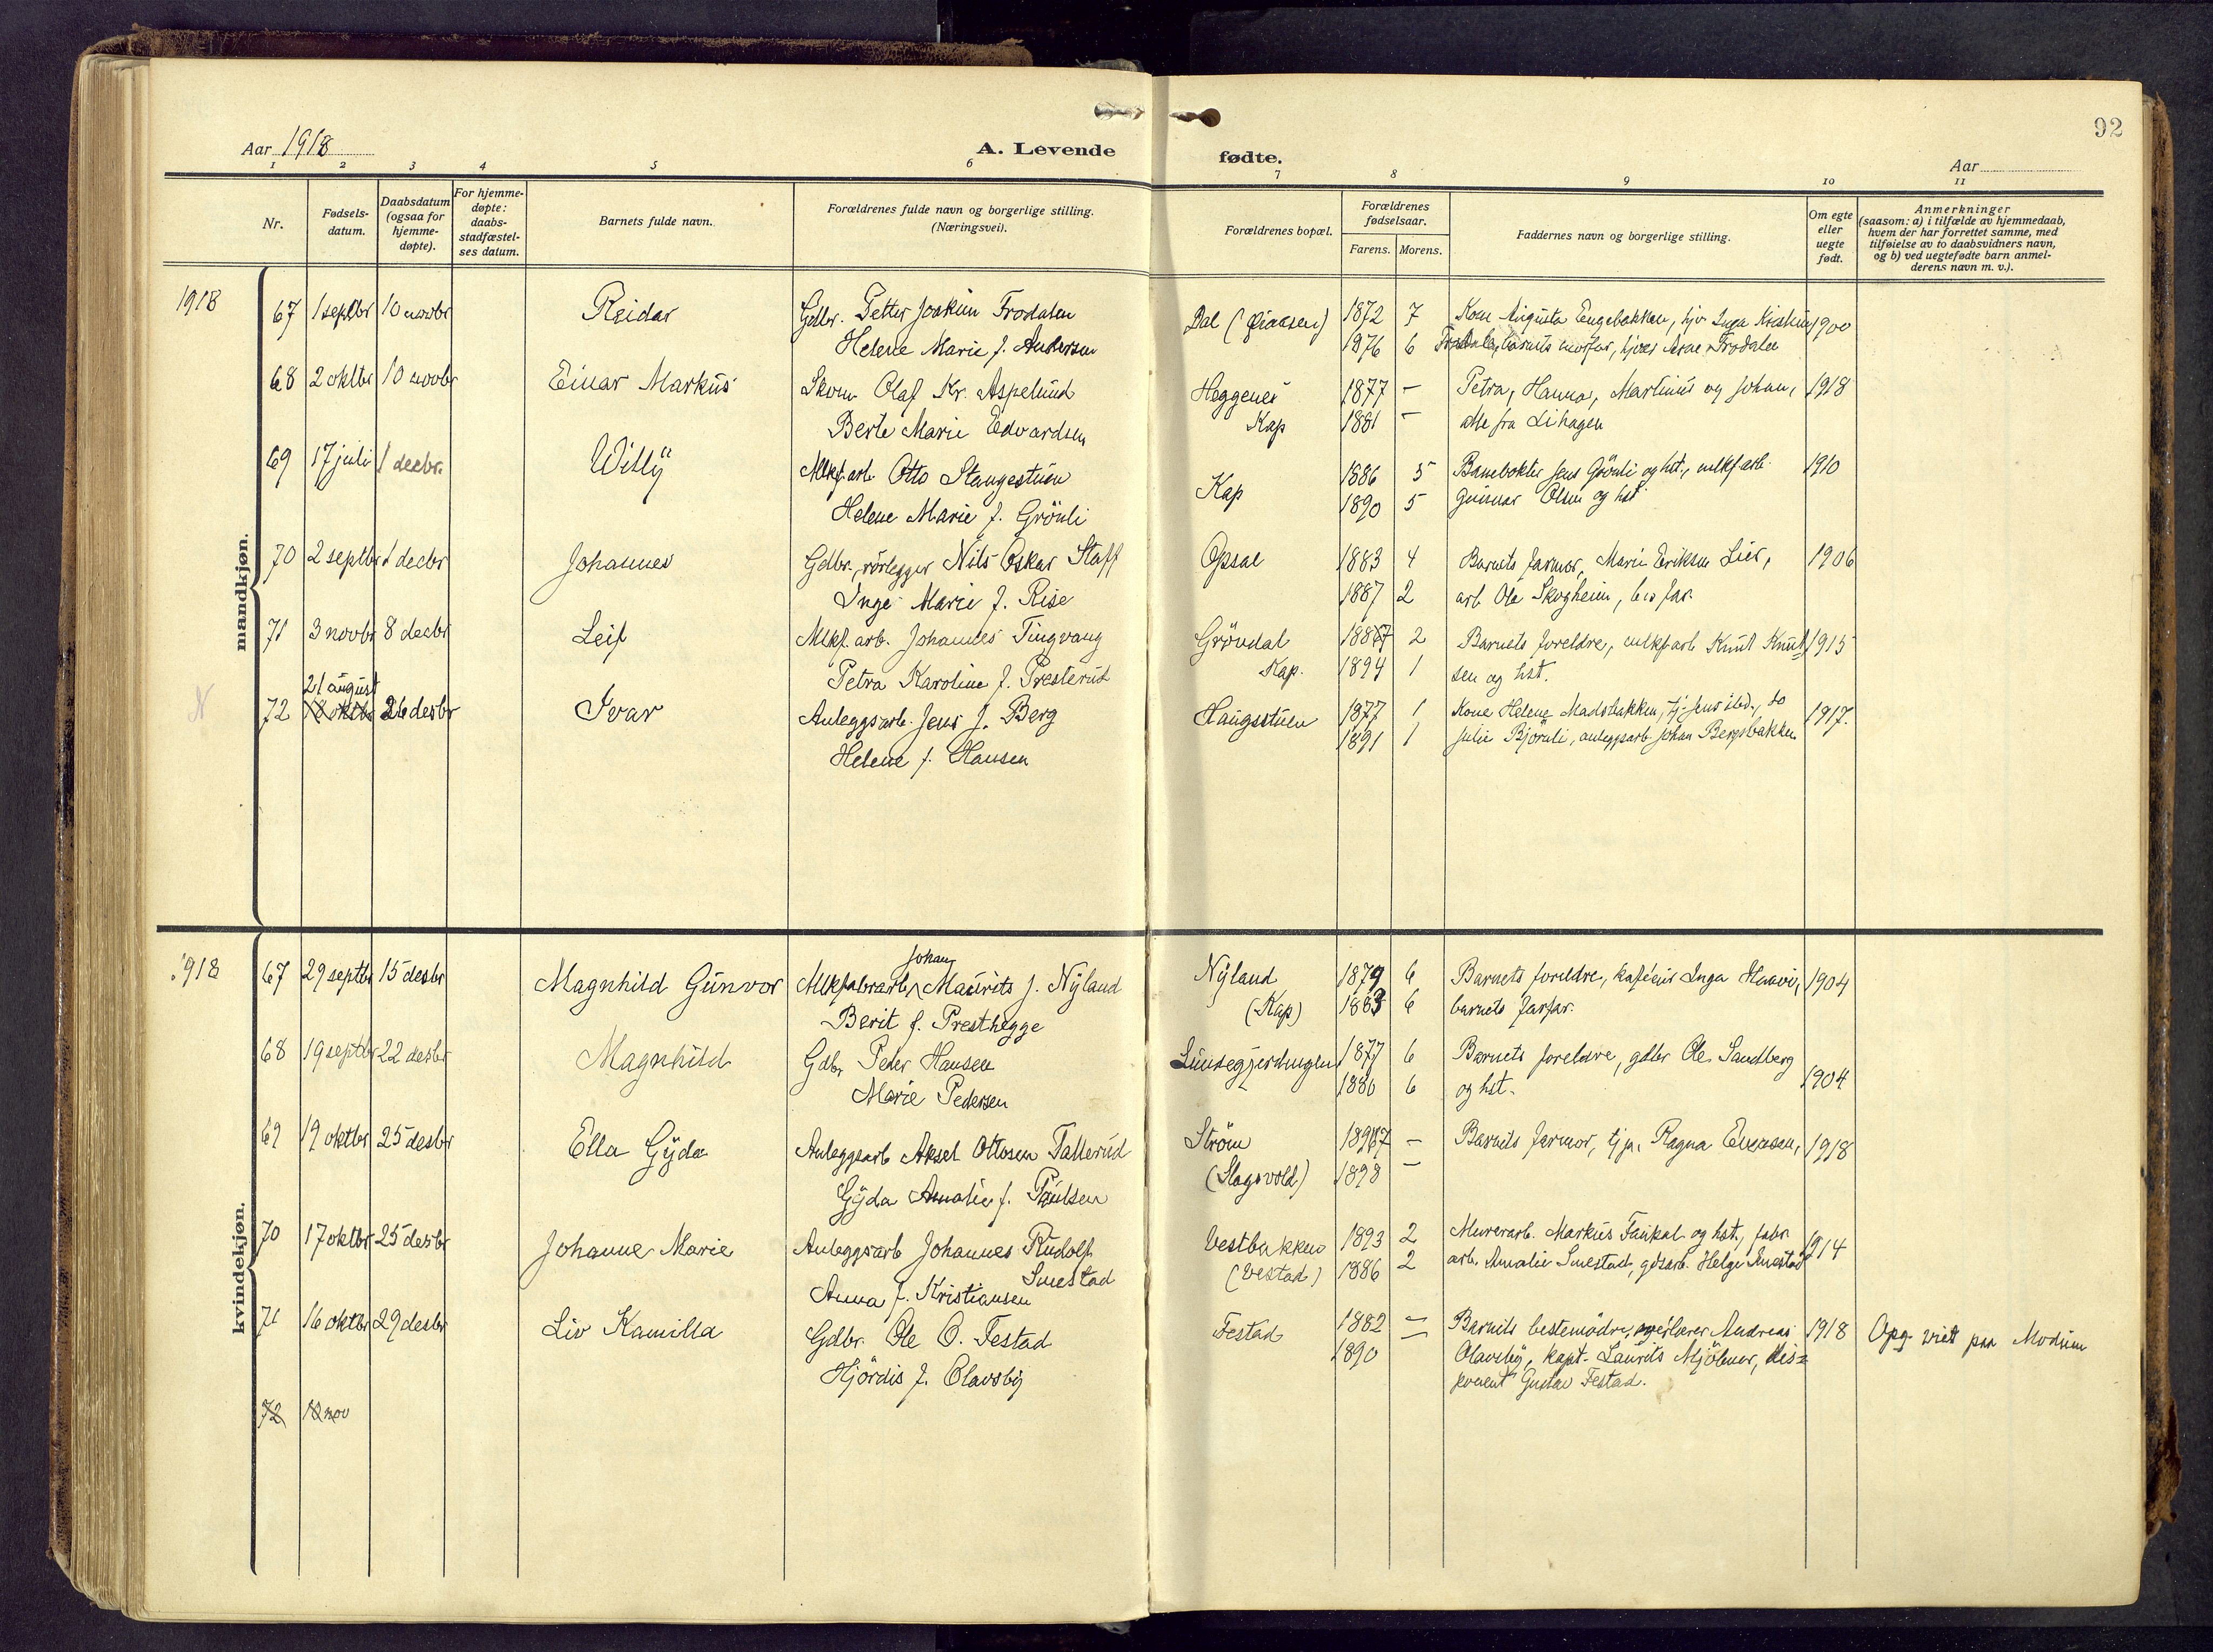 92
Aar 1918
A. Levende
fødte.
Aar
1 2 3 4 5 6 7 8 9 10 11
Nr.
Fødsels-
datum.
Daabsdatum
(ogsaa for
hjemme-
døpte).
For hjemme-
døpte:
daabs-
stadfæstel-
ses datum.
Barnets fulde navn.
Forældrenes fulde navn og borgerlige stilling.
(Næringsvei).
Forældrenes bopæl.
Forældrenes
fødselsaar.
Farens. Morens.
Faddernes navn og borgerlige stilling.
Om egte
eller
uegte
født.
Anmerkninger
(saasom: a) i tilfælde av hjemmedaab,
hvem der har forrettet samme, med
tilføielse av to daabsvidners navn,
og b) ved uegtefødte barn anmel-
derens navn m. v.).
mandkjøn.
1918
67 1 septbr 10 novbr Reidar Gdbr. Petter Joakim Frodalen Dal 1872 7 Kone Augusta Engebakken, hjv Inga Kristine 1900
Helene Marie f. Andersen 1876 6 barnets morfar, hjver Arne Frodalen
68 2 oktbr 10 novbr Einar Markus Skom Olaf Kr. Aspelund Heggenes 1877 – Petra, Hanna, Martinus og Johan, 1918
Berte Marie Edvardsen Kap 1881 – alle fra Lihagen
69 17 juli 1 decbr. Willy Mlkf.arb. Otto Stangestuen Kap 1886 5 Banevokter Jens Grönli og hst., mlkfarb. 1910
Helene Marie f. Grönli 1890 5 Gunnar Olsen og hst.
70 2 septbr 1 decbr Johannes Gdbr., rörlegger Nils Oskar Staff Opsal 1883 4 Barnets farmor, Marie Eriksen Lier, 1906
Inge Marie f. Rise 1887 2 arb. Ole Skogheim, bs far.
71 3 novbr 8 decbr Leif Mlkf. arb. Johannes Tingvang Gröndal 1887 2 Barnets foreldre, mlkfarb Knut Knut- 1915
Petra Karoline f. Presterud Kap. 1894 1 sen og hst.
21 august
72 18 oktbr 26 desbr Ivar Anleggsarb. Jens J. Berg Haugsstuen 1877 1 Kone Helene Madsbakken, tj. Jens ibd., do 1917.
Helene f. Hansen 1891 1 Julie Björnli, anleggsarb Johan Bergsbakken
kvindekjøn.
1918
Johan
67 29 septbr 15 desbr Magnhild Gunvor Mlkfabrarb. Maurits J. Nyland Nyland 1879 6 Barnets foreldre, Inga Haavi, 1904
Berit f. Presthegge (Kap) 1883 6 barnets farfar.
68 19 septbr 22 desbr Magnhild Gdbr Peder Hansen 1877 6 Barnets foreldre, gdbr Ole Sandberg
Marie Pedersen 1880 6 og hst. 1904
69 19 oktbr 25 desbr Ella Gyda Anleggsarb Aksel Ottosen Tallerud Ström – Barnets farmor, tj.p. Ragna 1918
Gyda Amalie f. Paulsen (Slagsvold) 1898 –
70 17 oktbr 25 desbr Johanne Marie Anleggsarb Johannes Rudolf Vestbakken 1893 2 Murerarb. Markus Faukal og hst., fabr 1914
Smestad
Anna f. Kristiansen (Vestad) 1886 2 arb. Amalie Smestad, gdsarb. Helge Smestad
71 16 oktbr 29 desbr Liv Kamilla Gdbr. Ole O. Festad Festad 1882 – Barnets bestemödre, Andreas 1918 Opg. viet paa Modum
Hjördis f. Olavsby 1890 – Olavsby, kapt. Laurits Mjölner, dis-
ponent Gustav Festad.
72 18 nov